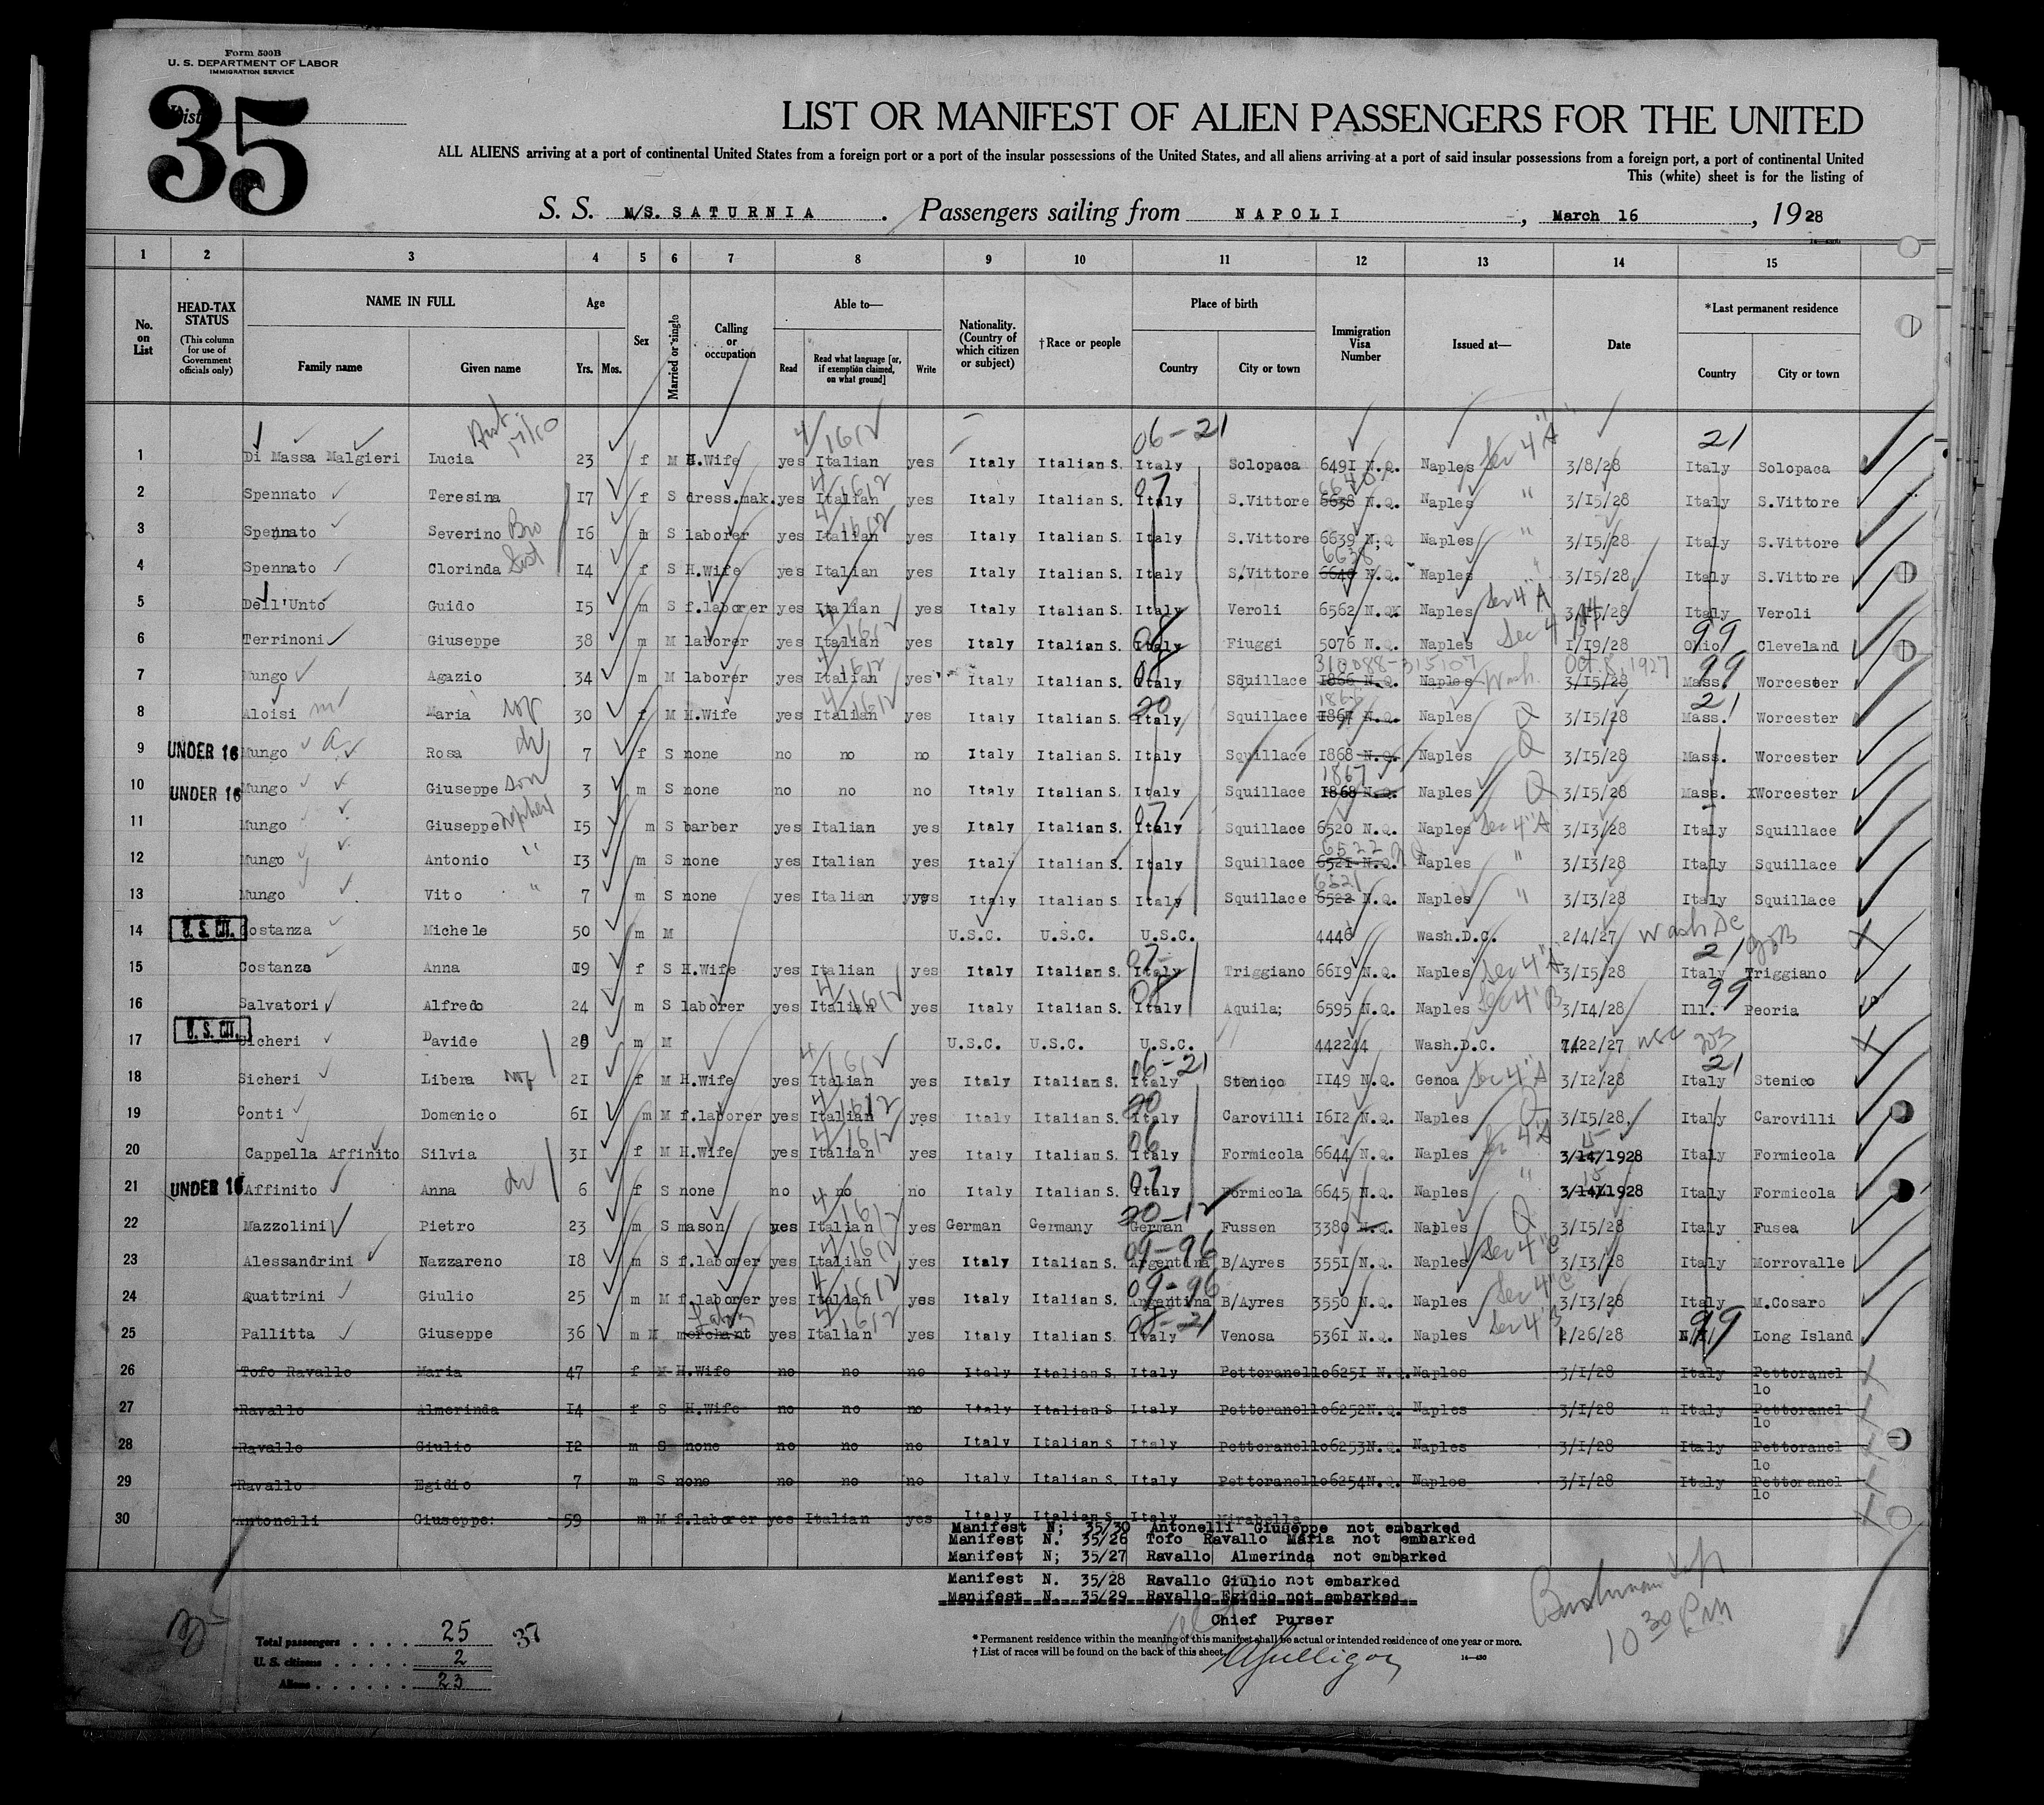 Form 500B
U. S. DEPARTMENT OF LABOR
IMMIGRATION SERVICE
List
35
LIST OR MANIFEST OF ALIEN PASSENGERS FOR THE UNITED
ALL ALIENS arriving at a port of continental United States from a foreign port or a port of the insular possessions of the United States, and all aliens arriving at a port of said insular possessions from a foreign port, a port of continental United
This (white) sheet is for the listing of
S. S. M/S. SATURNIA. Passengers sailing from NAPOLI, March 16, 1928
1 2 3 4 5 6 7 8 9 10 11 12 13 14 15
No. on List
HEAD-TAX STATUS (This column for use of Government officials only)
NAME IN FULL Family name Given name
Age Yrs. Mos.
Sex
Married or single
Calling or occupation
Able to— Read Read what language [or, if exemption claimed, on what ground] Write
Nationality. (Country of which citizen or subject)
†Race or people
Place of birth Country City or town
Immigration Visa Number
Issued at—
Date
*Last permanent residence Country City or town
4/1612 06-21 21
1 Di Massa Malgieri Lucia 23 f M H.Wife yes Italian yes Italy Italian S. Italy Solopaca 6491 N.Q. Naples Sec 4"A" 3/8/28 Italy Solopaca
2 Spennato Teresina 17 f S dress.mak. yes Italian yes Italy Italian S. Italy S.Vittore 6638 6640 N.Q. Naples " 3/15/28 Italy S.Vittore
3 Spennato Severino Bro 16 m S laborer yes Italian yes Italy Italian S. Italy S.Vittore 6639 N;Q Naples " 3/15/28 Italy S.Vittore
4 Spennato Clorinda Sist 14 f S H.Wife yes Italian yes Italy Italian S. Italy S.Vittore 6640 6638 N.Q. Naples " 3/15/28 Italy S.Vittore
5 Dell'Unto Guido 15 m S f.laborer yes Italian yes Italy Italian S. Italy Veroli 6562 N.Q. Naples Sec 4"A 3/15/28 Italy Veroli
6 Terrinoni Giuseppe 38 m M laborer yes Italian yes Italy Italian S. Italy Fiuggi 5076 N.Q. Naples Sec 4 B 1/19/28 Ohio 99 Cleveland
7 Mungo Agazio 34 m M laborer yes Italian yes Italy Italian S. Italy Squillace 1866 N.Q. 310088-315107 Naples Wash. 3/15/28 Oct. 8, 1927 Mass. 99 Worcester
8 Aloisi Maria 30 f M H.Wife yes Italian yes Italy Italian S. Italy 20 Squillace 1867 1866 N.Q. Naples Q 3/15/28 Mass. 21 Worcester
9 UNDER 16 Mungo Rosa 7 f S none no no no Italy Italian S. Italy Squillace 1868 N.Q. Naples Q 3/15/28 Mass. Worcester
10 UNDER 16 Mungo Giuseppe son 3 m S none no no no Italy Italian S. Italy Squillace 1868 N.Q. 1867 Naples Q 3/15/28 Mass. Worcester
11 Mungo Giuseppe nephew 15 m S barber yes Italian yes Italy Italian S. Italy 07 Squillace 6520 N.Q. Naples Sec 4"A" 3/13/28 Italy Squillace
12 Mungo Antonio " 13 m S none yes Italian yes Italy Italian S. Italy Squillace 6521 N.Q. 6522 Naples " 3/13/28 Italy Squillace
13 Mungo Vito " 7 m S none yes Italian yes Italy Italian S. Italy Squillace 6522 6521 N.Q. Naples " 3/13/28 Italy Squillace
14 U.S. CIT. Costanza Michele 50 m M U.S.C. U.S.C. U.S.C. 4446 Wash.D.C. 2/4/27 Wash DC
15 Costanza Anna 19 f S H.Wife yes Italian yes Italy Italian S. Italy Triggiano 6619 N.Q. Naples Sec 4"A" 3/15/28 Italy 21 Triggiano
16 Salvatori Alfredo 24 m S laborer yes Italian yes Italy Italian S. Italy Aquila; 6595 N.Q. Naples Sec 4"B 3/14/28 Ill. 99 Peoria
17 U.S. CIT. Sicheri Davide 28 m M U.S.C. U.S.C. U.S.C. 442244 Wash.D.C. 22/27
18 Sicheri Libera 21 f M H.Wife yes Italian yes Italy Italian S. Italy 06-21 Stenico 1149 N.Q. Genoa Sec 4"A 3/12/28 Italy 21 Stenico
19 Conti Domenico 61 m M f.laborer yes Italian yes Italy Italian S. Italy 20 Carovilli 1612 N.Q. Naples Q 3/15/28, Italy Carovilli
20 Cappella Affinito Silvia 31 f M H.Wife yes Italian yes Italy Italian S. Italy 06 Formicola 6644 N.Q. Naples Sec 4"A 3/14/1928 15 Italy Formicola
21 UNDER 16 Affinito Anna 6 f S none no no no Italy Italian S. Italy 07 Formicola 6645 N.Q. Naples " 3/14/1928 15 Italy Formicola
22 Mazzolini Pietro 23 m S mason yes Italian yes German Germany German 20-12 Fussen 3380 N.Q. Naples Q 3/15/28 Italy Fusea
23 Alessandrini Nazzareno 18 m S f.laborer yes Italian yes Italy Italian S. Argentina 09-96 B/Ayres 3551 N.Q. Naples Sec 4"C 3/13/28 Italy Morrovalle
24 Quattrini Giulio 25 m M f.laborer yes Italian yes Italy Italian S. Argentina 09-96 B/Ayres 3550 N.Q. Naples Sec 4"C 3/13/28 Italy M.Cosaro
25 Pallitta Giuseppe 36 m M merchant yes Italian yes Italy Italian S. Italy 08-21 Venosa 5361 N.Q. Naples Sec 4"B 1/26/28 99 Long Island
26 Tofo Ravallo Maria 47 f M H.Wife no no no Italy Italian S. Italy Pettoranello 6251 N.Q. Naples 3/1/28 Italy Pettoranello
27 Ravallo Almerinda 14 f S H.Wife no no no Italy Italian S. Italy Pettoranello 6252 N.Q. Naples 3/1/28 Italy Pettoranello
28 Ravallo Giulio 12 m S none no no no Italy Italian S. Italy Pettoranello 6253 N.Q. Naples 3/1/28 Italy Pettoranello
29 Ravallo Egidio 7 m S none no no no Italy Italian S. Italy Pettoranello 6254 N.Q. Naples 3/1/28 Italy Pettoranello
30 Antonelli Giuseppe: 59 m M f.laborer yes Italian yes Italy Italian S. Italy Mirabella
Manifest N; 35/30 Antonelli Giuseppe not embarked
Manifest N. 35/26 Tofo Ravallo Maria not embarked
Manifest N; 35/27 Ravallo Almerinda not embarked
Manifest N. 35/28 Ravallo Giulio not embarked
Manifest N. 35/29 Ravallo Egidio not embarked
Chief Purser
Total passengers . . . . 25 37
U. S. citizens . . . . . 2
Aliens . . . . . . 23
* Permanent residence within the meaning of this manifest shall be actual or intended residence of one year or more.
† List of races will be found on the back of this sheet.
14—430
10 30 PM